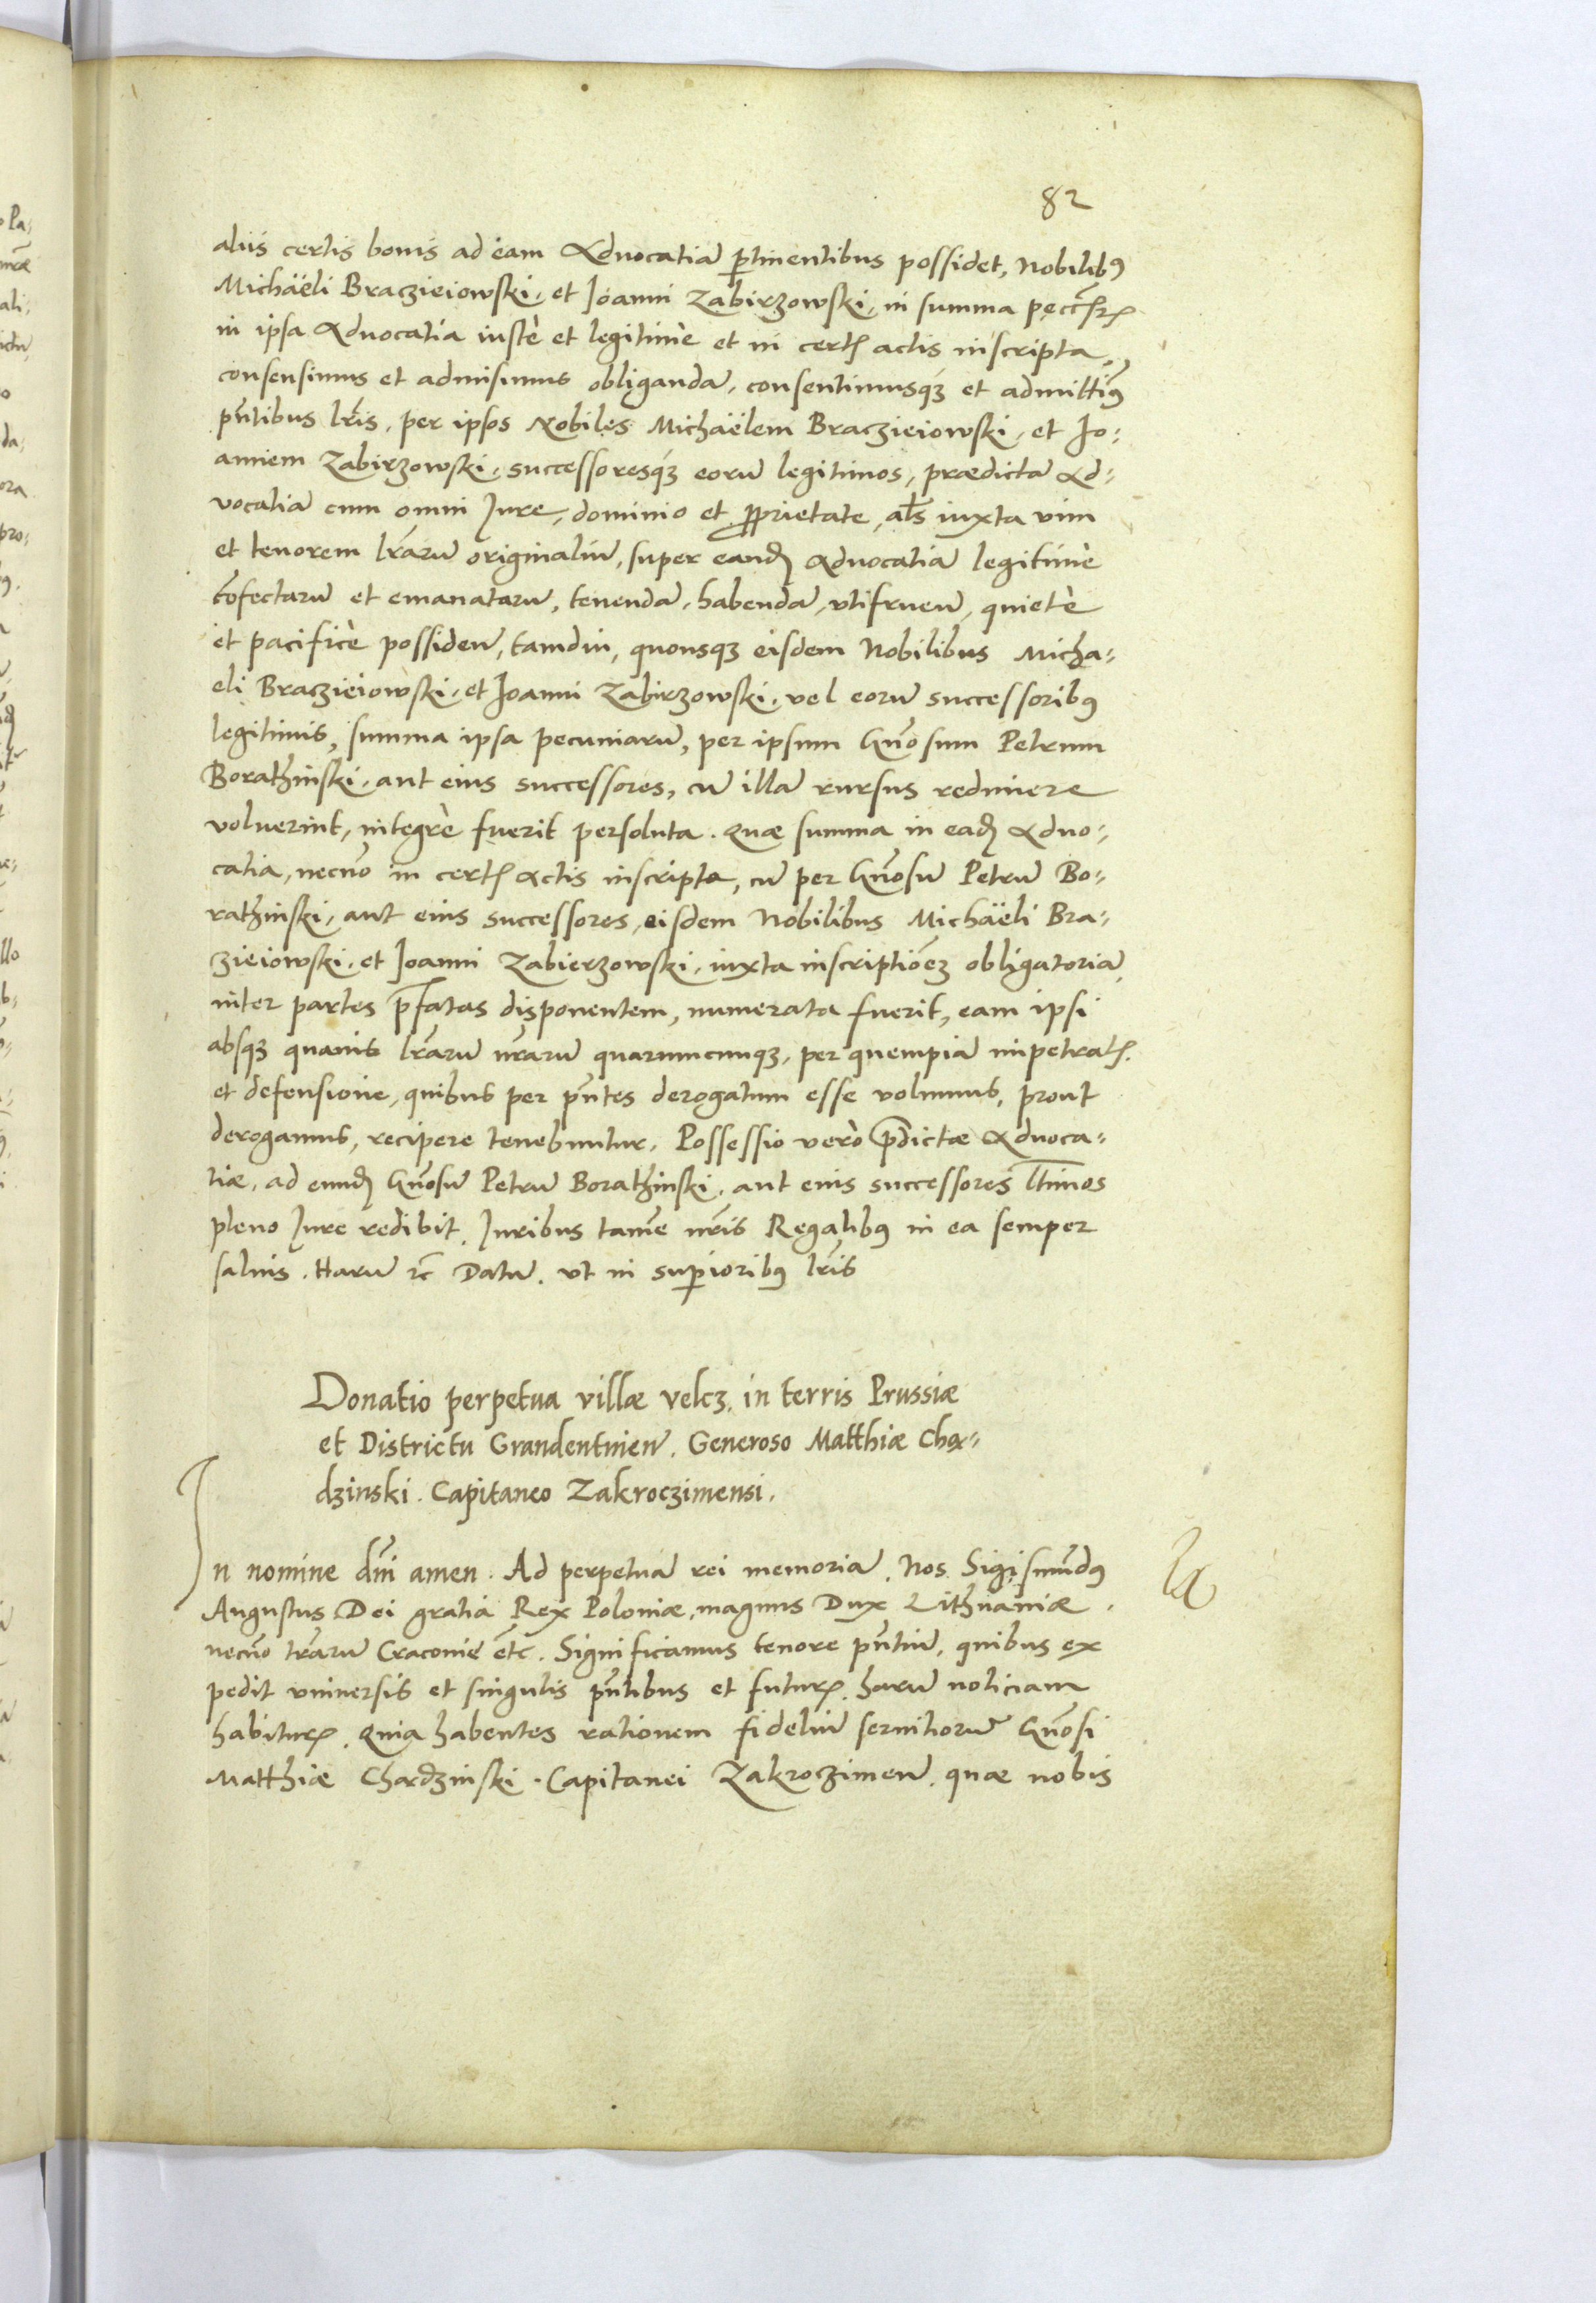 82
aliis certis bonis ad eam Advocatiā ꝑtinentibus possidet, Nobilibꝰ
Michaëli Braczieiowski, et Ioanni Zabirzowski, in summa
in ipsa Advocatia iustè et legitimè et in certꝭ actis inscripta,
consensimus et admisimus obligandā, consentimusqꝫ et admittimꝰ
pn̄tibus lr̄is, per ipsos Nobiles Michaëlem Braczieiowski, et Io:
annem Zabirzowski, successoresqꝫ eorū legitimos, prædictā Ad:
vocatiā cum omni Iure, dominio et ꝓprietate, als̄ iuxta vim
et tenorem lr̄arū originaliū, super eandē Advocatiā legitimè
cōfectarū et emanatarū, tenendā, habendā, vtifruen̄, quietè
et pacificè possiden̄, tamdiu, quousqꝫ eisdem Nobilibus Micha:
eli Braczieiowski, et Ioanni Zabirzowski, vel eorū successoribꝰ
legitimis, summa ipsa pecuniarū, per ipsum Gn̄osum Petrum
Borathinski, aut eius successores, cū illā rursus redimere
voluerint, integrè fuerit persoluta. Quæ summa in eadē Advo:
catia, necnō in certꝭ Actis inscripta, cū per Gn̄osū Petrū Bo:
rathinski, aut eius successores, eisdem Nobilibus Michaëli Bra:
zieiowski, et Ioanni Zabierzowski, iuxta inscriptiōeꝫ obligatoriā
inter partes p̄fatas disponentem, numerata fuerit, eam ipsi
absqꝫ quauis lr̄arū nr̄arū quarumcunqꝫ, per quempiā impetratꝭ
et defensione, quibus per pn̄tes derogatum esse volumus, prout
derogamus, recipere tenebuntur. Possessio verò p̄dictæ Advoca:
tiæ, ad eundē Gn̄osū Petrū Borathinski, aut eius successores ltīmos
pleno Iure redibit. Iuribus tamē nr̄is Regalibꝰ in ea semper
saluis. Harū ꝛc̄ Datū. vt in suꝑioribꝰ lr̄is
Donatio perpetua villæ velcz, in terris Prussiæ
et Districtu Grandentinen̄. Generoso Matthiæ Chą:
dzinski. Capitaneo Zakroczimensi.
In nomine dn̄i amen. Ad perpetuā rei memoriā. Nos Sigismūdꝰ
Augustus Dei gratia Rex Poloniæ, magnus Dux Lithuaniæ.
necnō tr̄arū Cracoviē etc̄. Significamus tenore pn̄tiū, quibus ex
pedit vniuersis et singulis pn̄tibus et futurꝭ harū noticiam
habiturꝭ. Quia habentes rationem fideliū seruitiorū Gn̄osi
Matthiæ Chądzinski. Capitanei Zakroczimen̄. quæ nobis